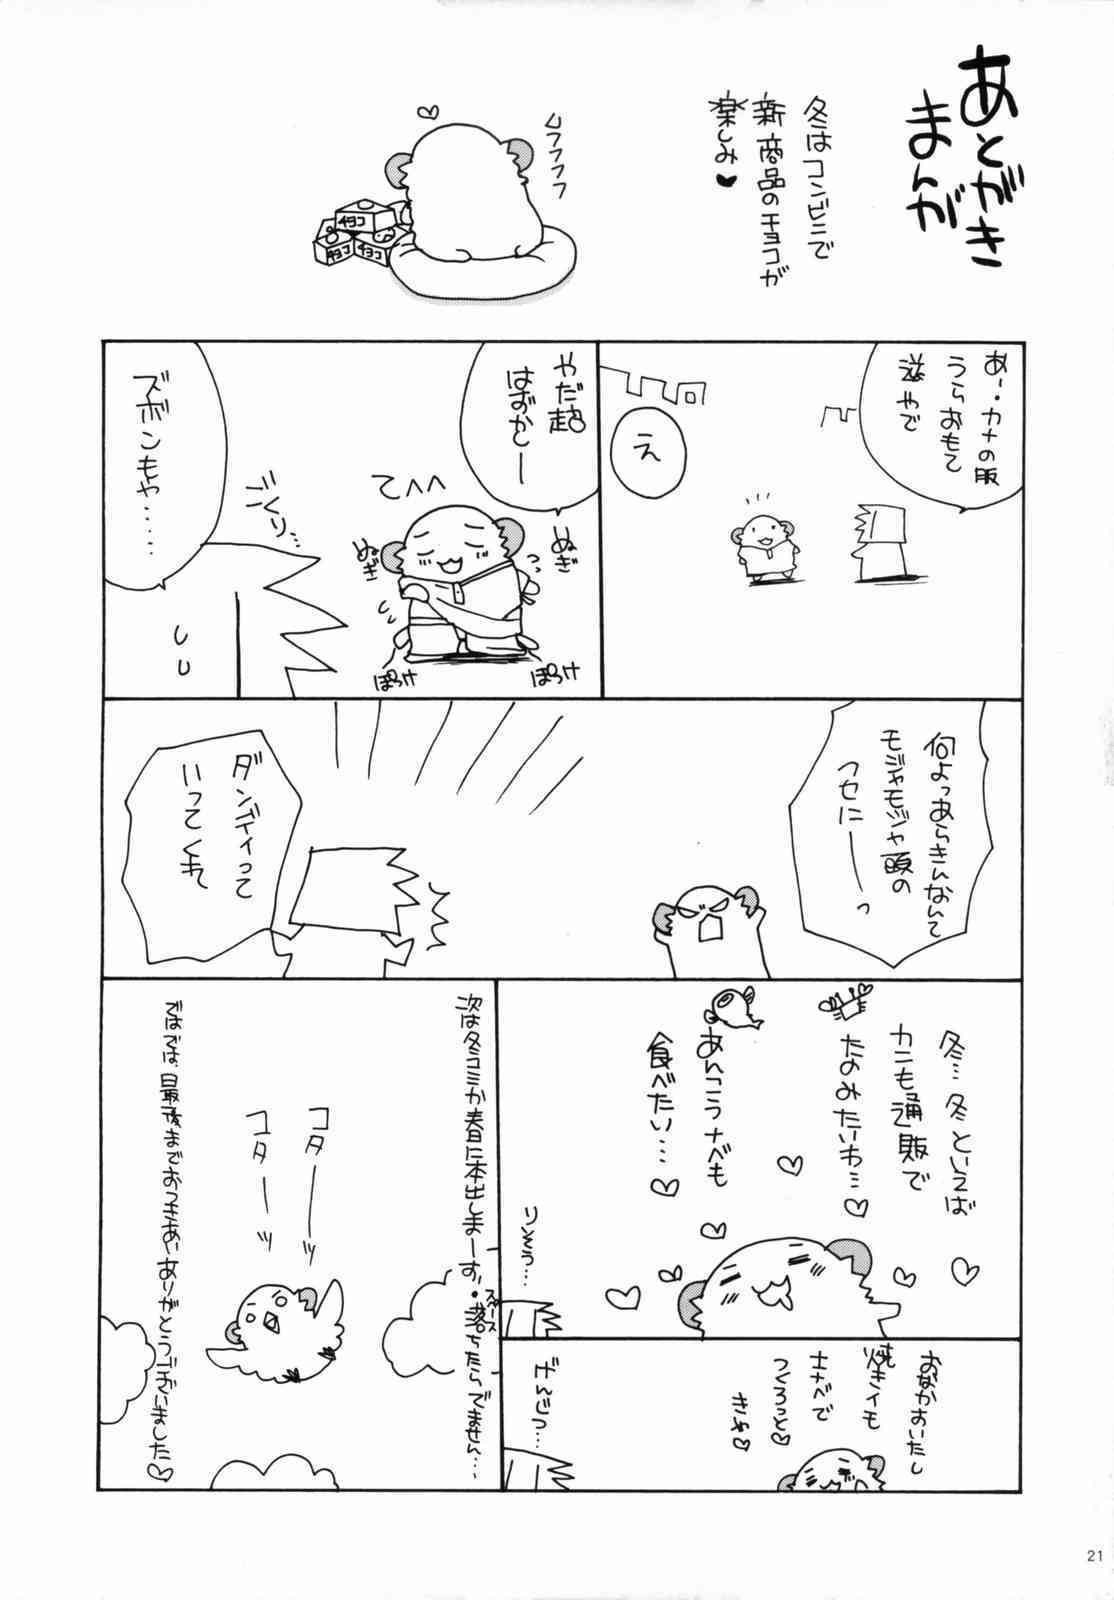 あとがき
まんが
冬はコンビニで
新商品のチョコが
楽しみ♥
ムフフフフ
チョコ
チョコ
チョコ
あー・カナの服
うらおもて
逆やで
え
やだ超
はずかしー
てへへ
ぬぎ
ぬぎ
ぽろけ
ぽろけ
ごくり…
ズボンもや……
何よっあらきんなんて
モジャモジャ頭の
クセにーーっ
ダンディって
いってくれ
冬…冬といえば
カニも通販で
たのみたいわ…♡
あんこうナベも
食べたい…♡
りそう…
おなかおいたし
焼きイモ
ナベで
つくろっと♡
きゃ♡
げんじつ…
次は冬コミか春に本出しまーす。・落ちたらでません…
スペース
コターーッ
コターーッ
ではでは、最後までおつきあいありがとうございました♡
21